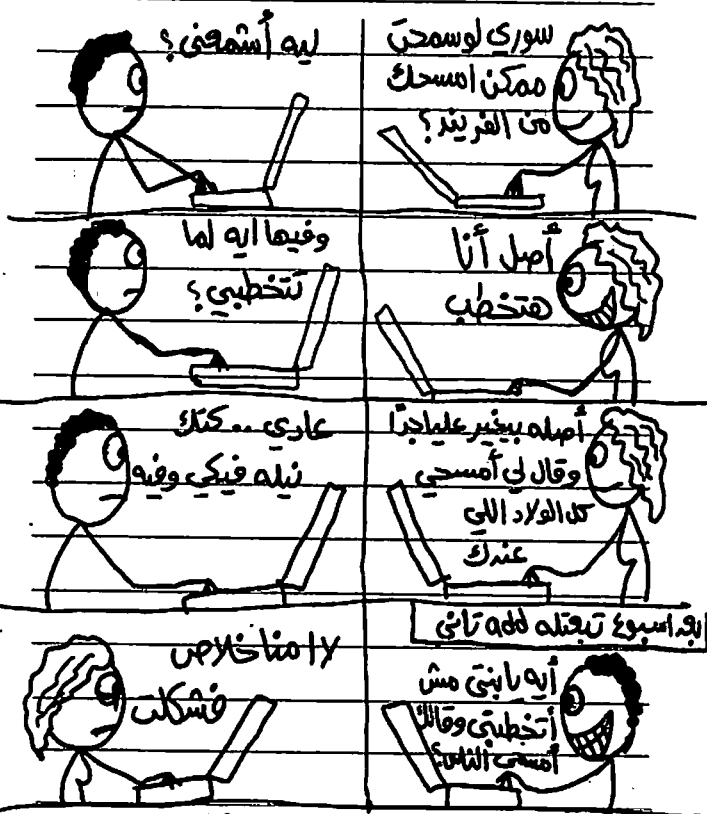 سوري لوسمحت
ممكن امسحك
من الفريند؟
ليه أشمعنى؟
أصل أنا
هتخطب
وفيها ايه لما
تتخطبي؟
أصله بيغير عليا جدًا
وقال لي أمسحي
كل الولاد اللي
عندك
عادي... كتك
نيله فيكي وفيه
بعد اسبوع تبعتله add تاني
أيه يا بنتي مش
أتخطبتي وقالك
أمسحي الناس؟
لا ا منا خلاص
فشكلت